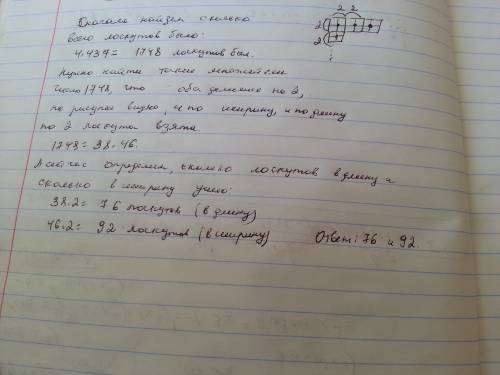 2 2
Вначале найдем сколько
всего лоскутов было:
2
2
4.437= 1748 лоскутов был.
Нужно найти такие множители
число 1748, что оба деление на 2,
на рисунке видно, и по ширину, и по длину
по 2 лоскута взята.
1748= 38.46.
А сейчас определим, сколько лоскутов в длину и
сколько в ширину ушло:
38.2= 76 лоскутов (в длину)
46.2= 92 лоскутов (в ширину)
Ответ: 76 и 92.